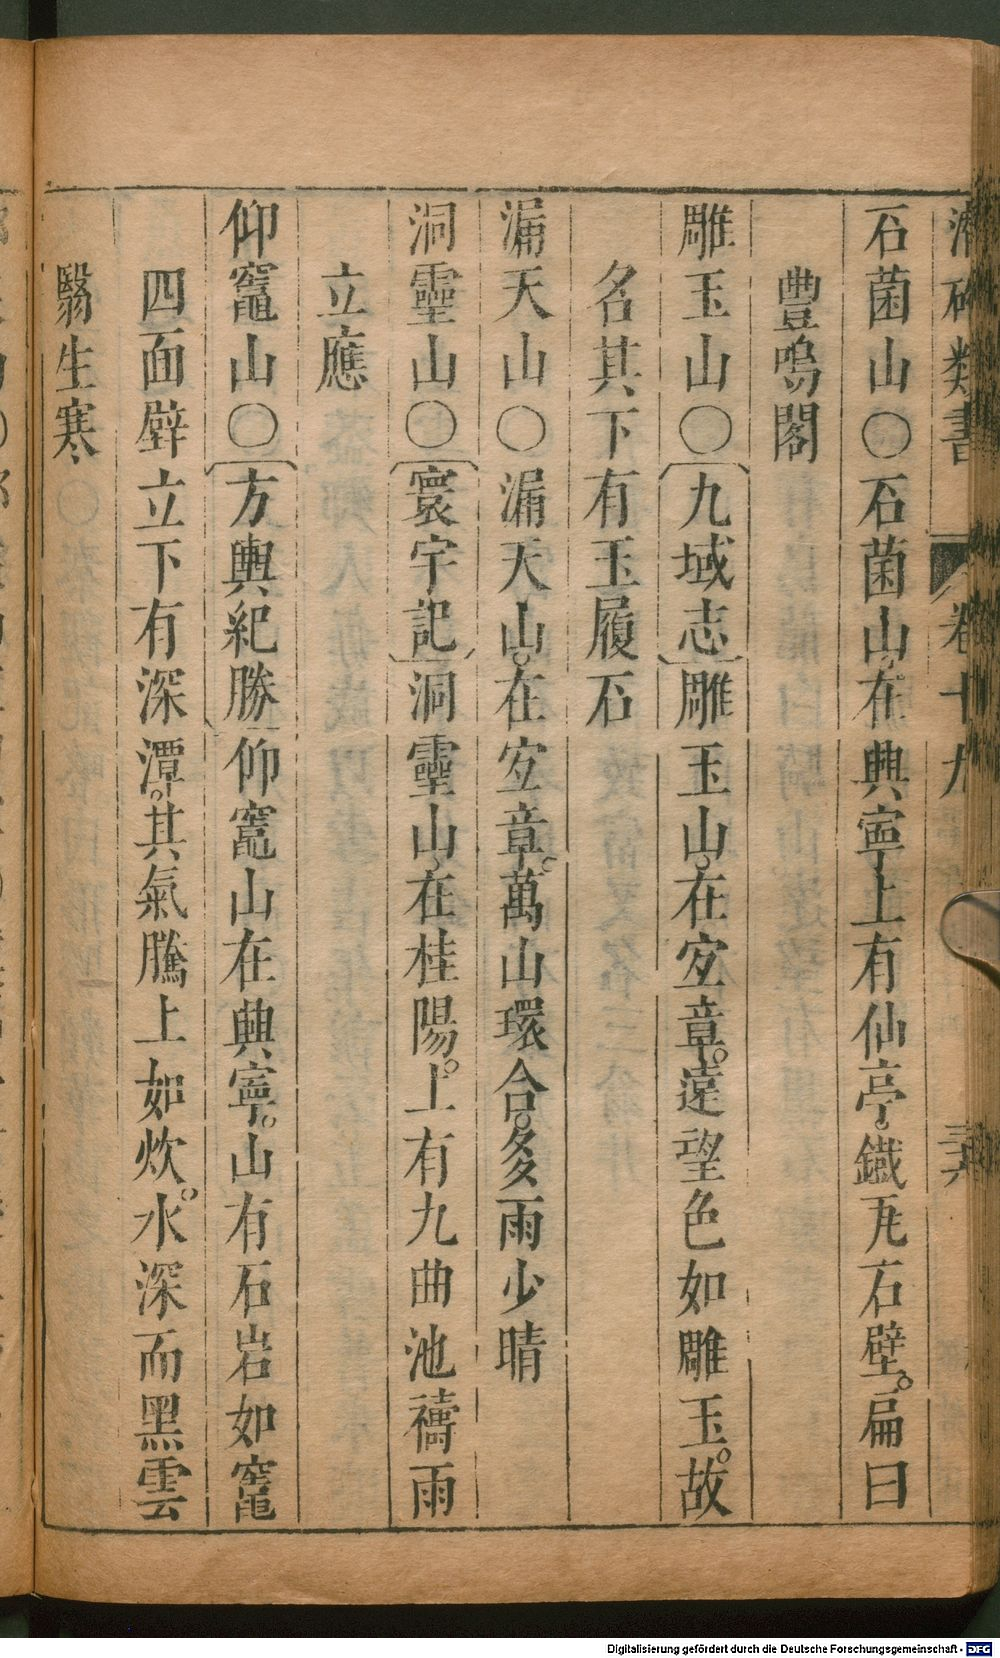 潛確類書 卷十九 三六
石菌山〇石菌山。在興寧上有仙亭。鐵瓦石壁。扁曰
豐鳴閣
雕玉山〇〔九域志〕雕玉山。在宐章。遠望色如雕玉。故
名其下有玉履石
漏天山〇漏天山。在宐章。萬山環合。多雨少晴
洞靈山〇〔寰宇記〕洞靈山。在桂陽。上有九曲池禱雨
立應
仰竈山〇〔方輿紀勝〕仰竈山在興寧。山有石岩如竈
四面壁立下有深潭。其氣騰上如炊。水深而黑雲
翳生寒
Digitalisierung gefördert durch die Deutsche Forschungsgemeinschaft - DFG